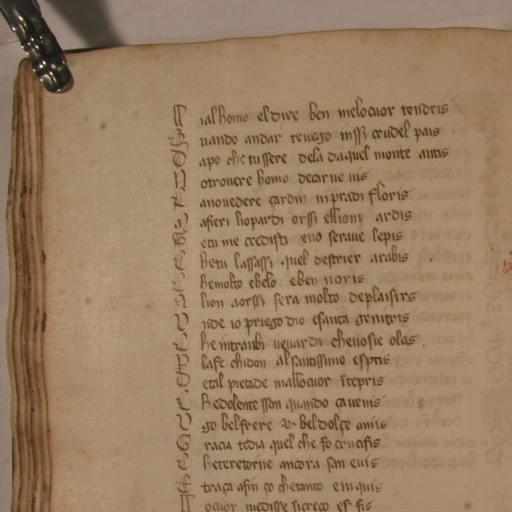 M ial homo el dire ben me lo cuor tendris
Q uando andar te vego in ssi crudel pais
D apo che tu ssere dela da quel monte antis
N o trovere homo de carne vis
E ano vedere çardin in pradi floris
M a fieri liopardi orssi e lliony ardis
S e tu me credisti eno serave lepis
E he tu lassassi quel destrier arabis
C he molto e belo e ben noris
A lion a orssi sera molto deplaisirs
U nde io priego dio e santa genitris
C he in tranbi ve vardi che no sie olas
E la fe chi don al santissimo esptis
E tal pietade mallo cuor itepris
C he dolente sson quando ca venis
U go bel frere vu bel dolçe amis
G racia te dia quel che fo crucifis
C he te retorne ancora san e vis
E traça afin ço che tanto e inquis
M o cuor me disse si creço esser fis